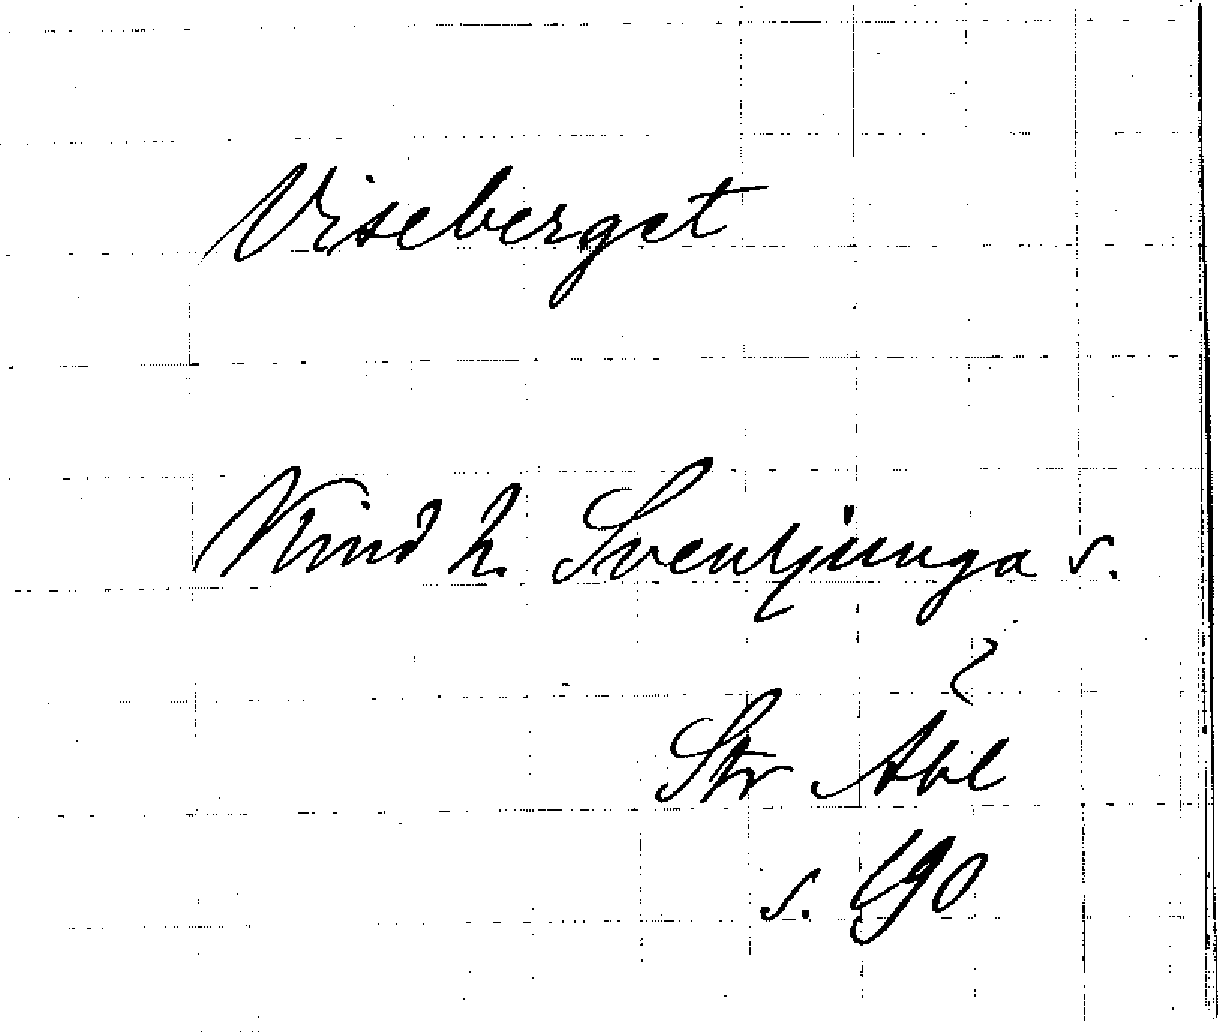 Viseberget
Kind h. Svenljunga s.
?
Str Abl
s. 690